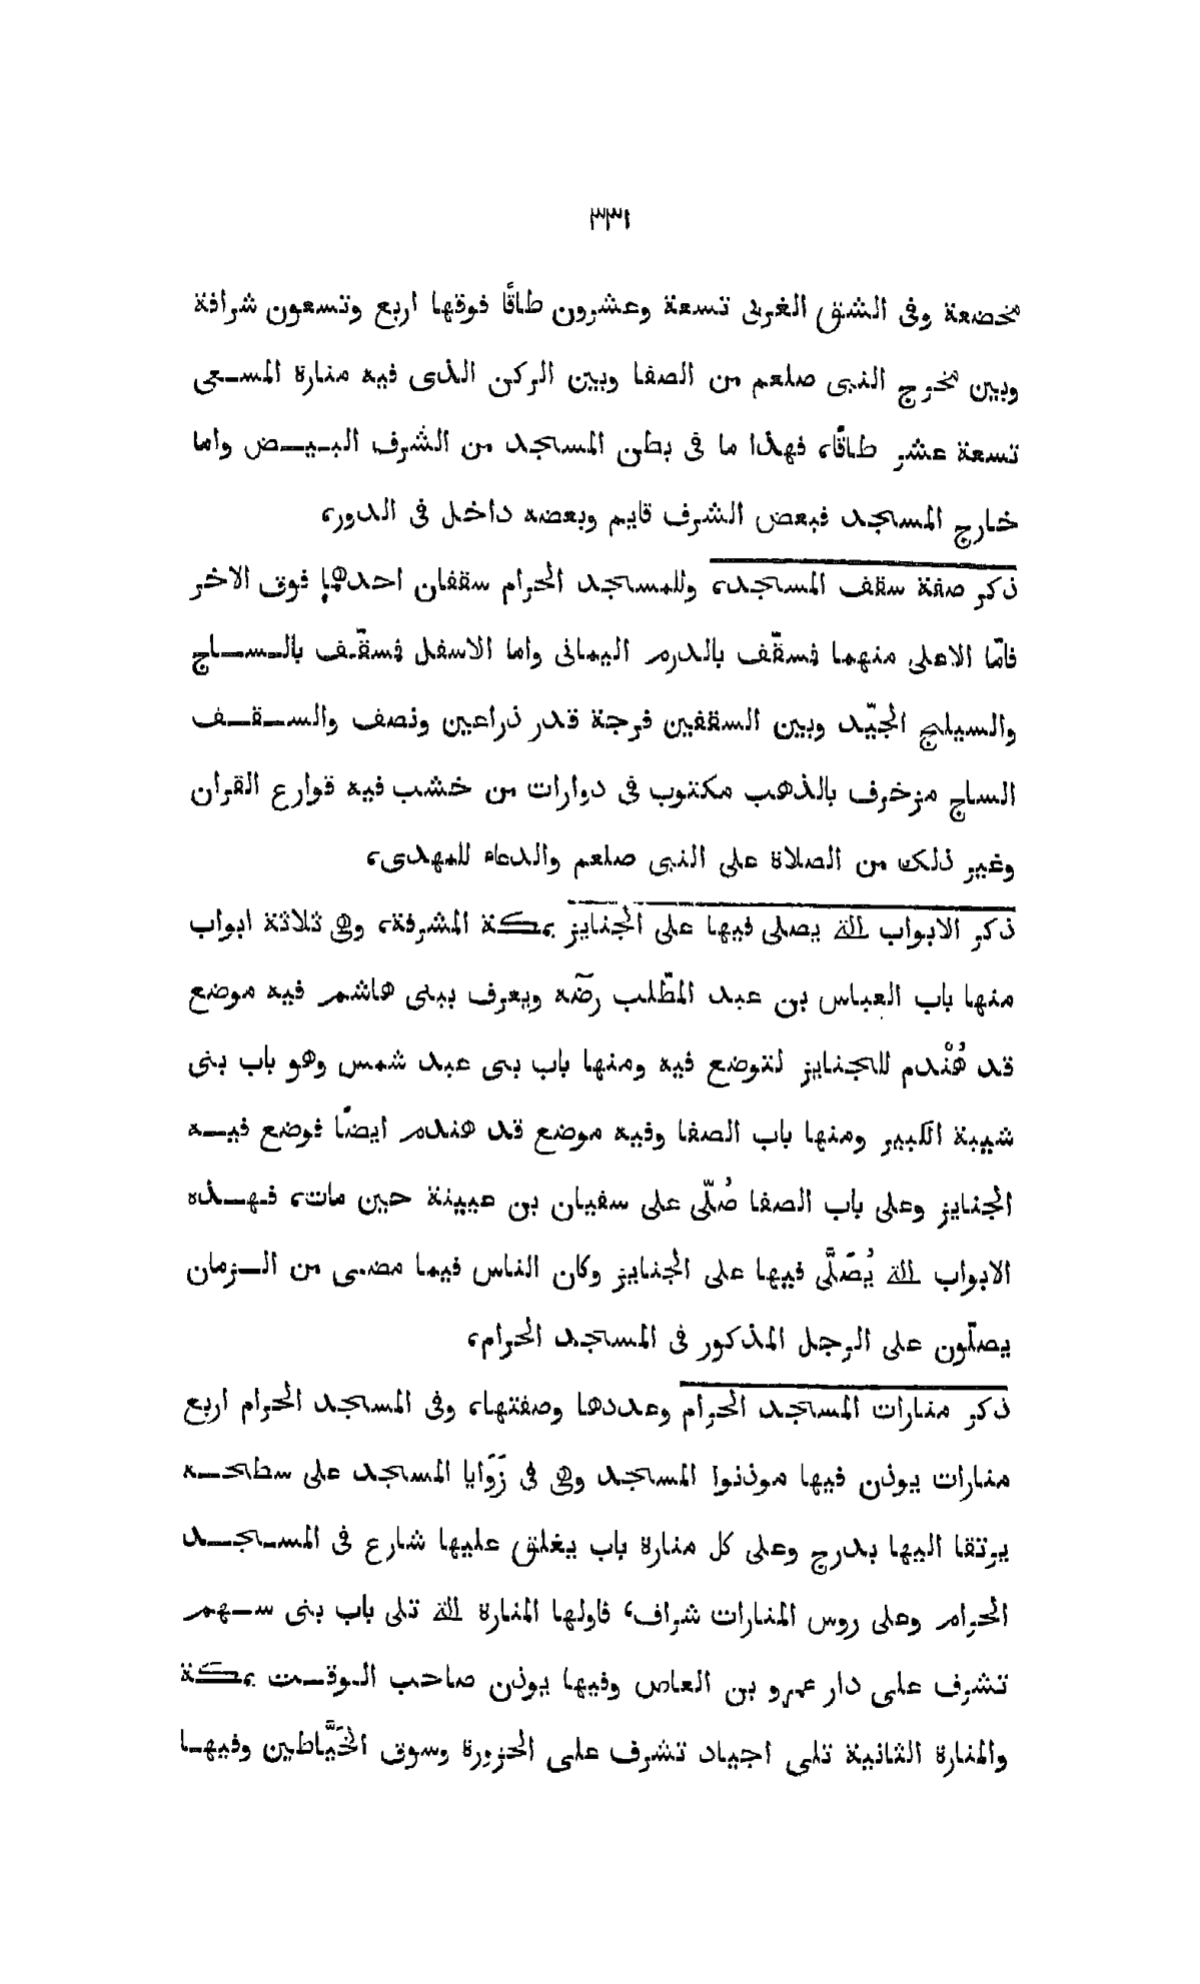 ٣٣١
مخضعة وفى الشق الغربى تسعة وعشرون طاقًا فوقها اربع وتسعون شرافة
وبين مخرج النبى صلعم من الصفا وبين الركن الذى فيه منارة المسعى
تسعة عشر طاقًا، فهذا ما فى بطن المسجد من الشرف البيض واما
خارج المسجد فبعض الشرف قايم وبعضه داخل فى الدور،
ذكر صفة سقف المسجد، وللمسجد الحرام سقفان احدهما فوق الاخر
فامّا الاعلى منهما فسقّف بالدرم اليمانى واما الاسفل فسقّف بالساج
والسيلج الجيّد وبين السقفين فرجة قدر ذراعين ونصف والسقف
الساج مزخرف بالذهب مكتوب فى دوارات من خشب فيه قوارع القران
وغير ذلك من الصلاة على النبى صلعم والدعاء للمهدى،
ذكر الابواب التى يصلى فيها على الجنايز بمكة المشرفة، وهى ثلاثة ابواب
منها باب العباس بن عبد المطّلب رضّه ويعرف ببنى هاشم فيه موضع
قد هُنْدم للجنايز لتوضع فيه ومنها باب بنى عبد شمس وهو باب بنى
شيبة الكبير ومنها باب الصفا وفيه موضع قد هندم ايضًا فوضع فيه
الجنايز وعلى باب الصفا صُلّى على سفيان بن عيينة حين مات، فهذه
الابواب التى يُصَلَّى فيها على الجنايز وكان الناس فيما مضى من الزمان
يصلّون على الرجل المذكور فى المسجد الحرام،
ذكر منارات المسجد الحرام وعددها وصفتها، وفى المسجد الحرام اربع
منارات يوذن فيها موذنوا المسجد وهى فى زَوَايا المسجد على سطحه
يرتقا اليها بدرج وعلى كل منارة باب يغلق عليها شارع فى المسجد
الحرام وعلى روس المنارات شراف، فاولها المنارة التى تلى باب بنى سهم
تشرف على دار عمرو بن العاص وفيها يوذن صاحب الوقت بمكة
والمنارة الثانية تلى اجياد تشرف على الحزورة وسوق الخَيَّاطين وفيها